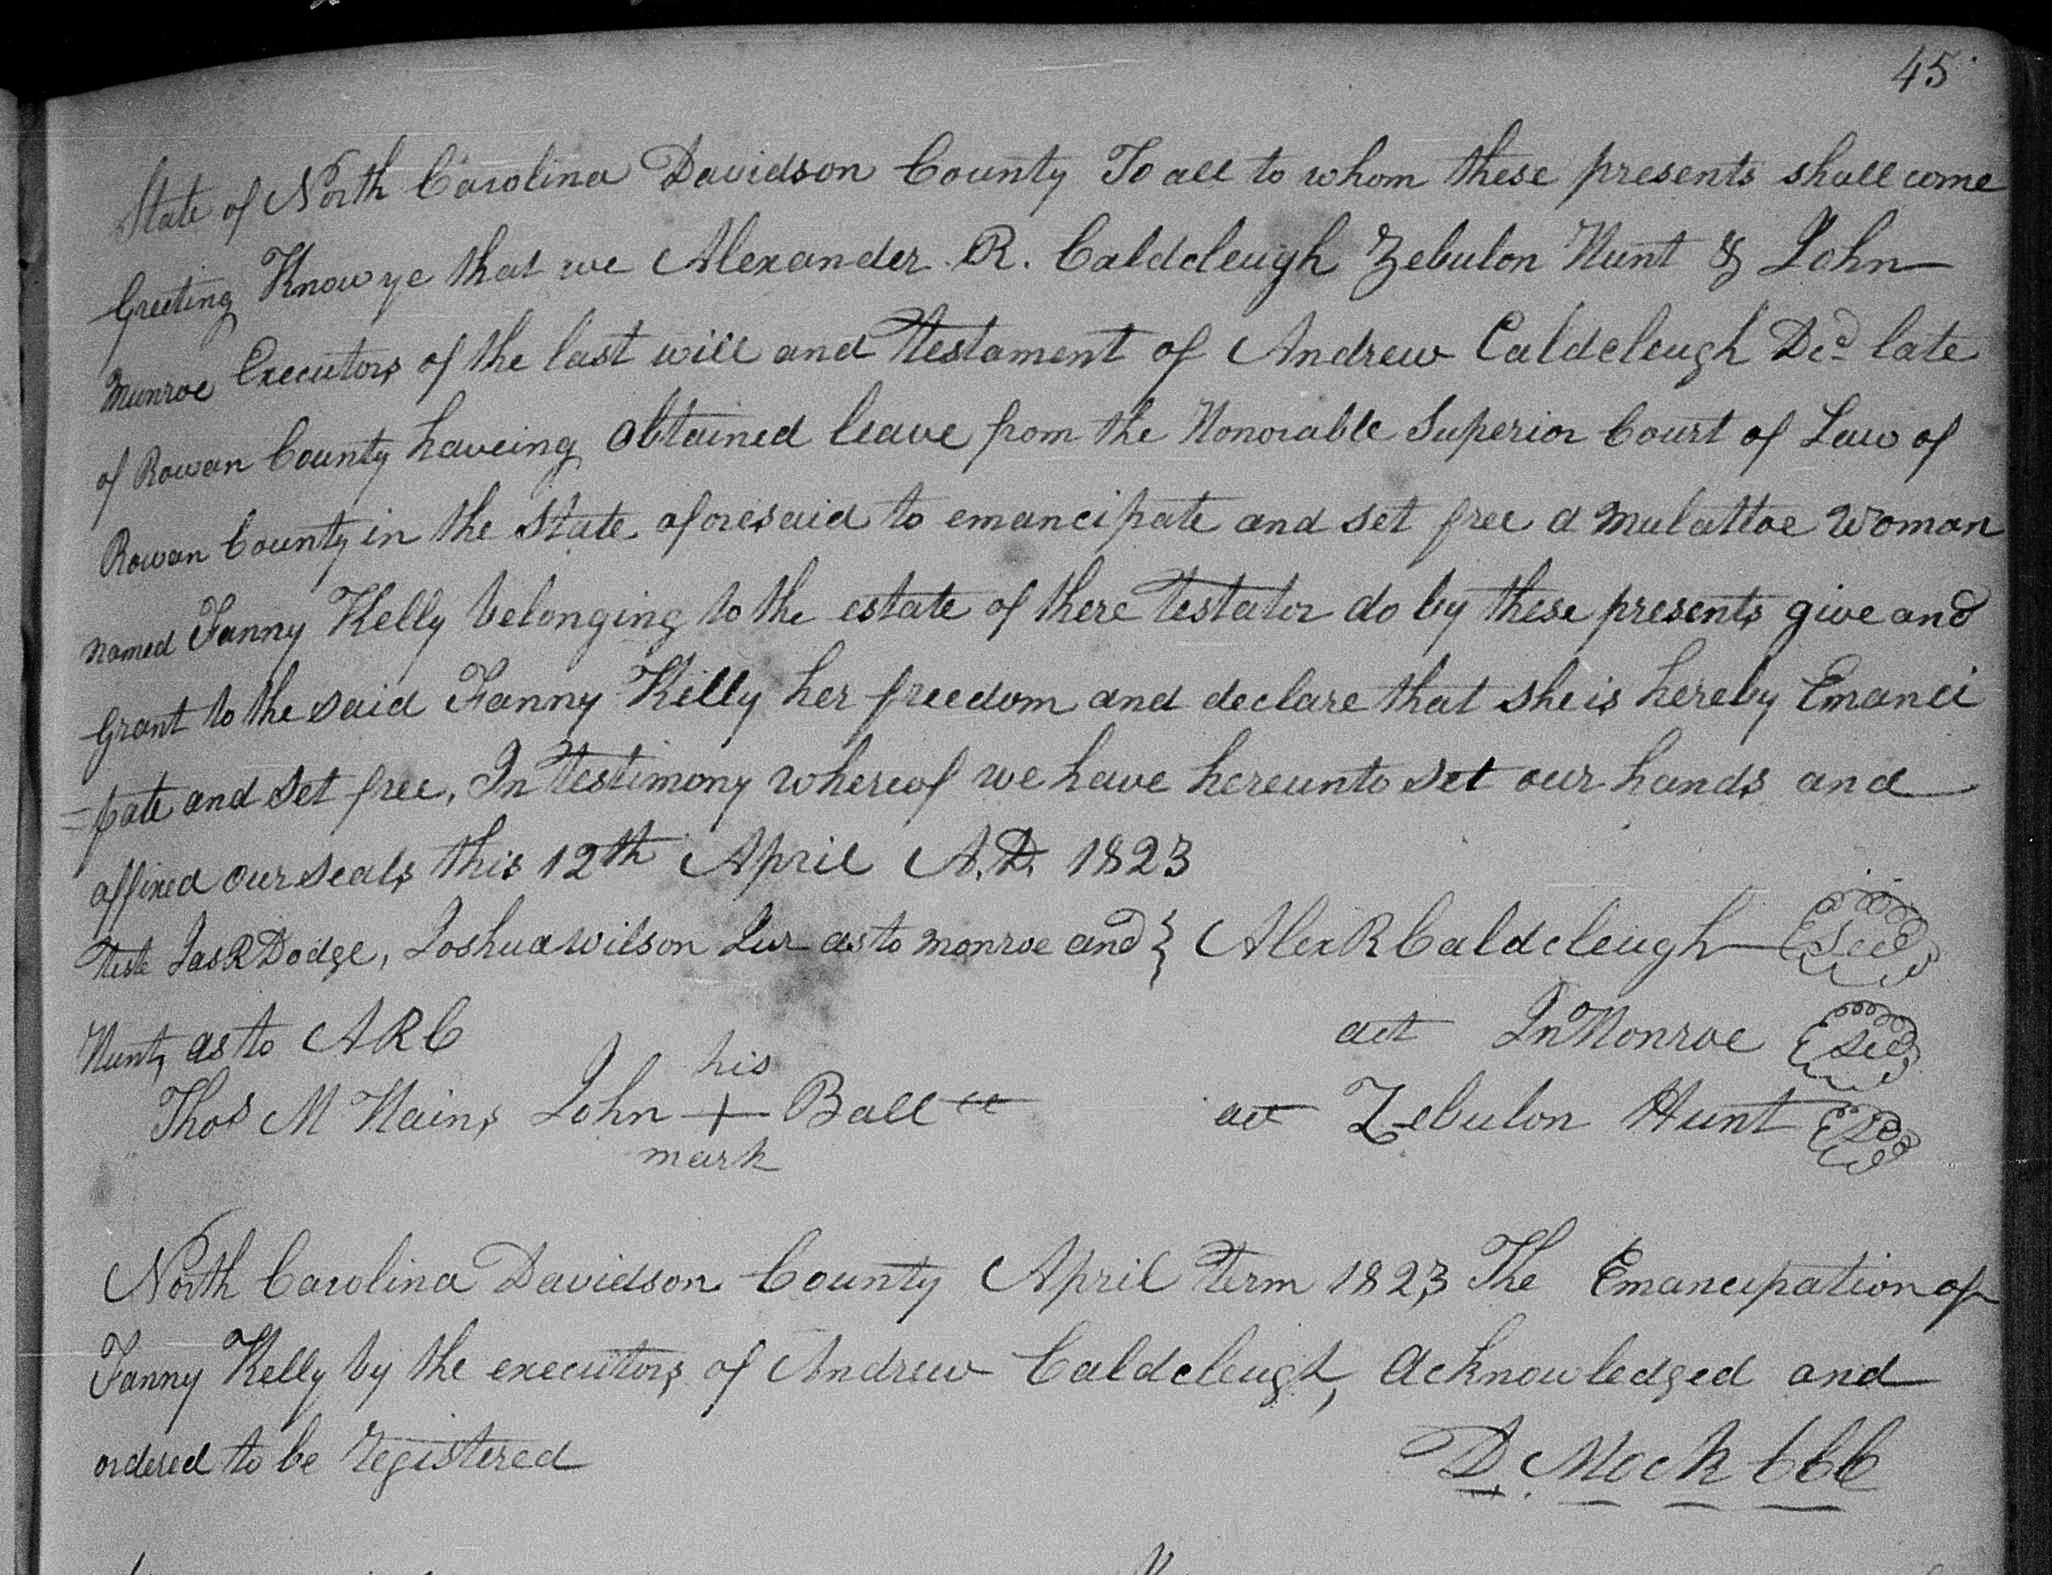 45
State of North Carolina Davidson County To all to whom these presents shall come
Greeting Know ye that we Alexander R. Caldcleugh Zebulon Hunt & John
Munroe Executors of the last will and Testament of Andrew Caldcleugh Decd late
of Rowan County haveing obtained leave from the Honorable Superior Court of Law of
Rowan County in the State aforesaid to emancipate and set free a mulattoe Woman
named Fanny Kelly belonging to the estate of there Testator do by these presents give and
Grant to the said Fanny Killy her freedom and declare that she is hereby Emanci
=pate and set free, In Testimony whereof we have hereunto set our hands and
affixed our seals this 12th April A.D. 1823
Teste Jas R Dodge, Joshua Wilson Jur as to Monroe and } Alex R Caldcleugh Seal
Hunt, as to ARC
act Jn Monroe Seal
his
Thos M Nains John + Ball
mark
act Zebulon Hunt Seal
North Carolina Davidson County April Term 1823 The Emancipation of
Fanny Kelly by the executors of Andrew Caldcleugh, Acknowledged and
ordered to be registered
D. Mock CCC